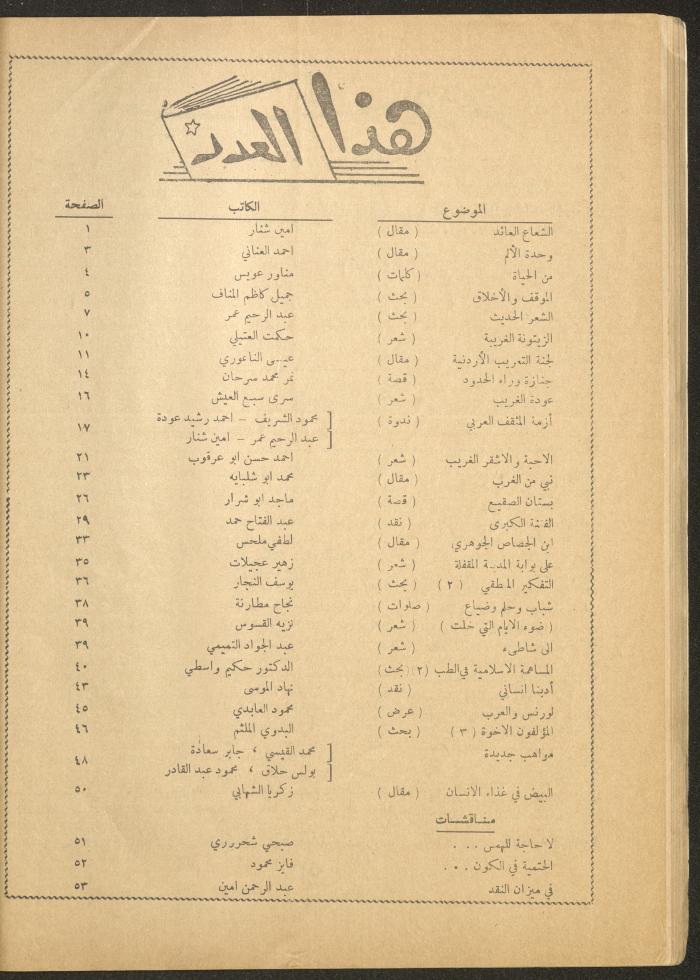 هذا العدد
الموضوع الكاتب الصفحة
الشعاع العائد ( مقال ) امين شنار ١
وحدة الألم ( مقال ) احمد العناني ٣
من الحياة ( كلمات ) مناور عويس ٤
الموقف والأخلاق ( بحث ) جميل كاظم المناف ٥
الشعر الحديث ( بحث ) عبد الرحيم عمر ٧
الزيتونة الغريبة ( شعر ) حكمت العتيلي ١٠
لجنة التعريب الأردنية ( مقال ) عيسى الناعوري ١١
جنازة وراء الحدود ( قصة ) نمر محمد سرحان ١٤
عودة الغريب ( شعر ) سرى سبع العيش ١٦
أزمة المثقف العربي ( ندوة ) [ محمود الشريف – احمد رشيد عودة ١٧
[ عبد الرحيم عمر – امين شنار
الاحبة والاشقر الغريب ( شعر ) احمد حسن ابو عرقوب ٢١
نبي من الغرب ( مقال ) محمد ابو شلبايه ٢٣
بستان الصقيع ( قصة ) ماجد ابو شرار ٢٦
الفتنة الكبرى ( نقد ) عبد الفتاح حمد ٢٩
ابن الجصاص الجوهري ( مقال ) لطفي ملحس ٣٣
على بوابة المدينة المقفلة ( شعر ) زهير عجيلات ٣٥
التفكير المنطقي ( ٢ ) ( بحث ) يوسف النجار ٣٦
شباب وحلم وضياع ( صلوات ) نجاح مطارنة ٣٨
( ضوء الايام التي خلت ) ( شعر ) نزيه القسوس ٣٩
الى شاطىء ( شعر ) عبد الجواد التميمي ٣٩
المساهمة الاسلامية في الطب (٢) (بحث) الدكتور حكيم واسطي ٤٠
أدبنا انساني ( نقد ) نهاد الموسى ٤٣
لورنس والعرب ( عرض ) محمود العابدي ٤٥
المؤلفون الاخوة ( ٣ ) ( بحث ) البدوي الملثم ٤٦
مواهب جديدة [ محمد القيسي ، جابر سعادة ٤٨
[ بولس حلاق ، محمود عبد القادر
البيض في غذاء الانسان ( مقال ) زكريا الشهابي ٥٠
مناقشات
لا حاجة للهمس . . . صبحي شحروري ٥١
الحتمية في الكون . . . فايز محمود ٥٢
في ميزان النقد عبد الرحمن امين ٥٣